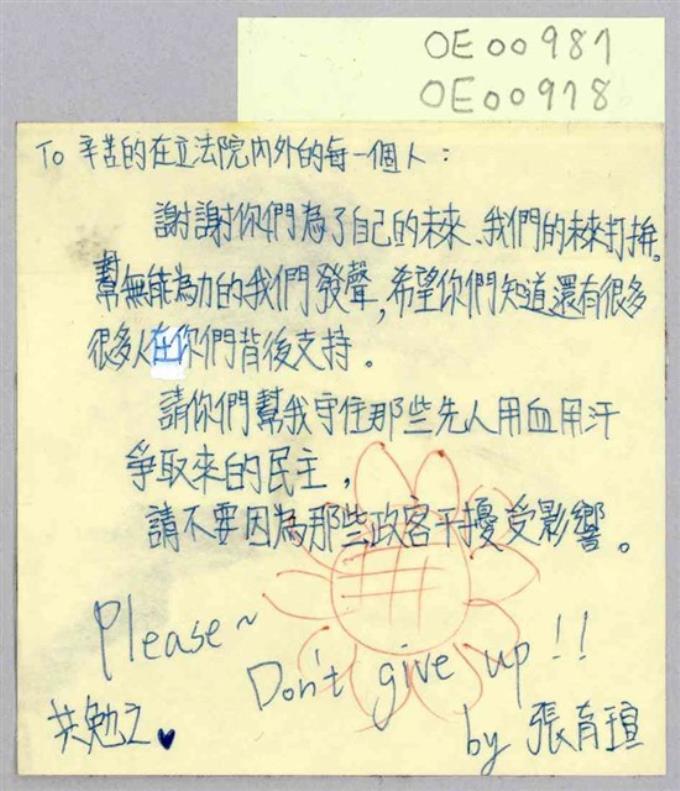 OE00981
OE00918
To 辛苦的在立法院內外的每一個人：
謝謝你們為了自己的未來、我們的未來打拚。
幫無能為力的我們發聲,希望你們知道,還有很多
很多人在你們背後支持。
請你們幫我守住那些先人用血用汗
爭取來的民主，
請不要因為那些政客干擾受影響。
Please~
Don't give up!!
共勉之♥
by 張育瑄